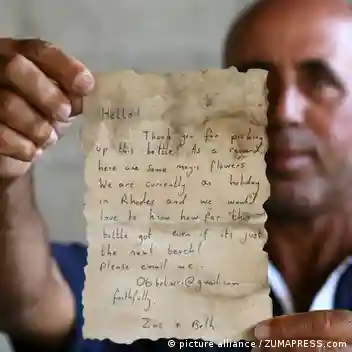 Hello!
Thank you for picking
up this bottle! As a reward
here are some magic flowers
We are currently on holiday
in Rhodes and we would
love to know how far this
bottle got even if its just
the next beach!
Please email me:
@gmail.com
faithfully.
Zac n Beth
© picture alliance / ZUMAPRESS.com